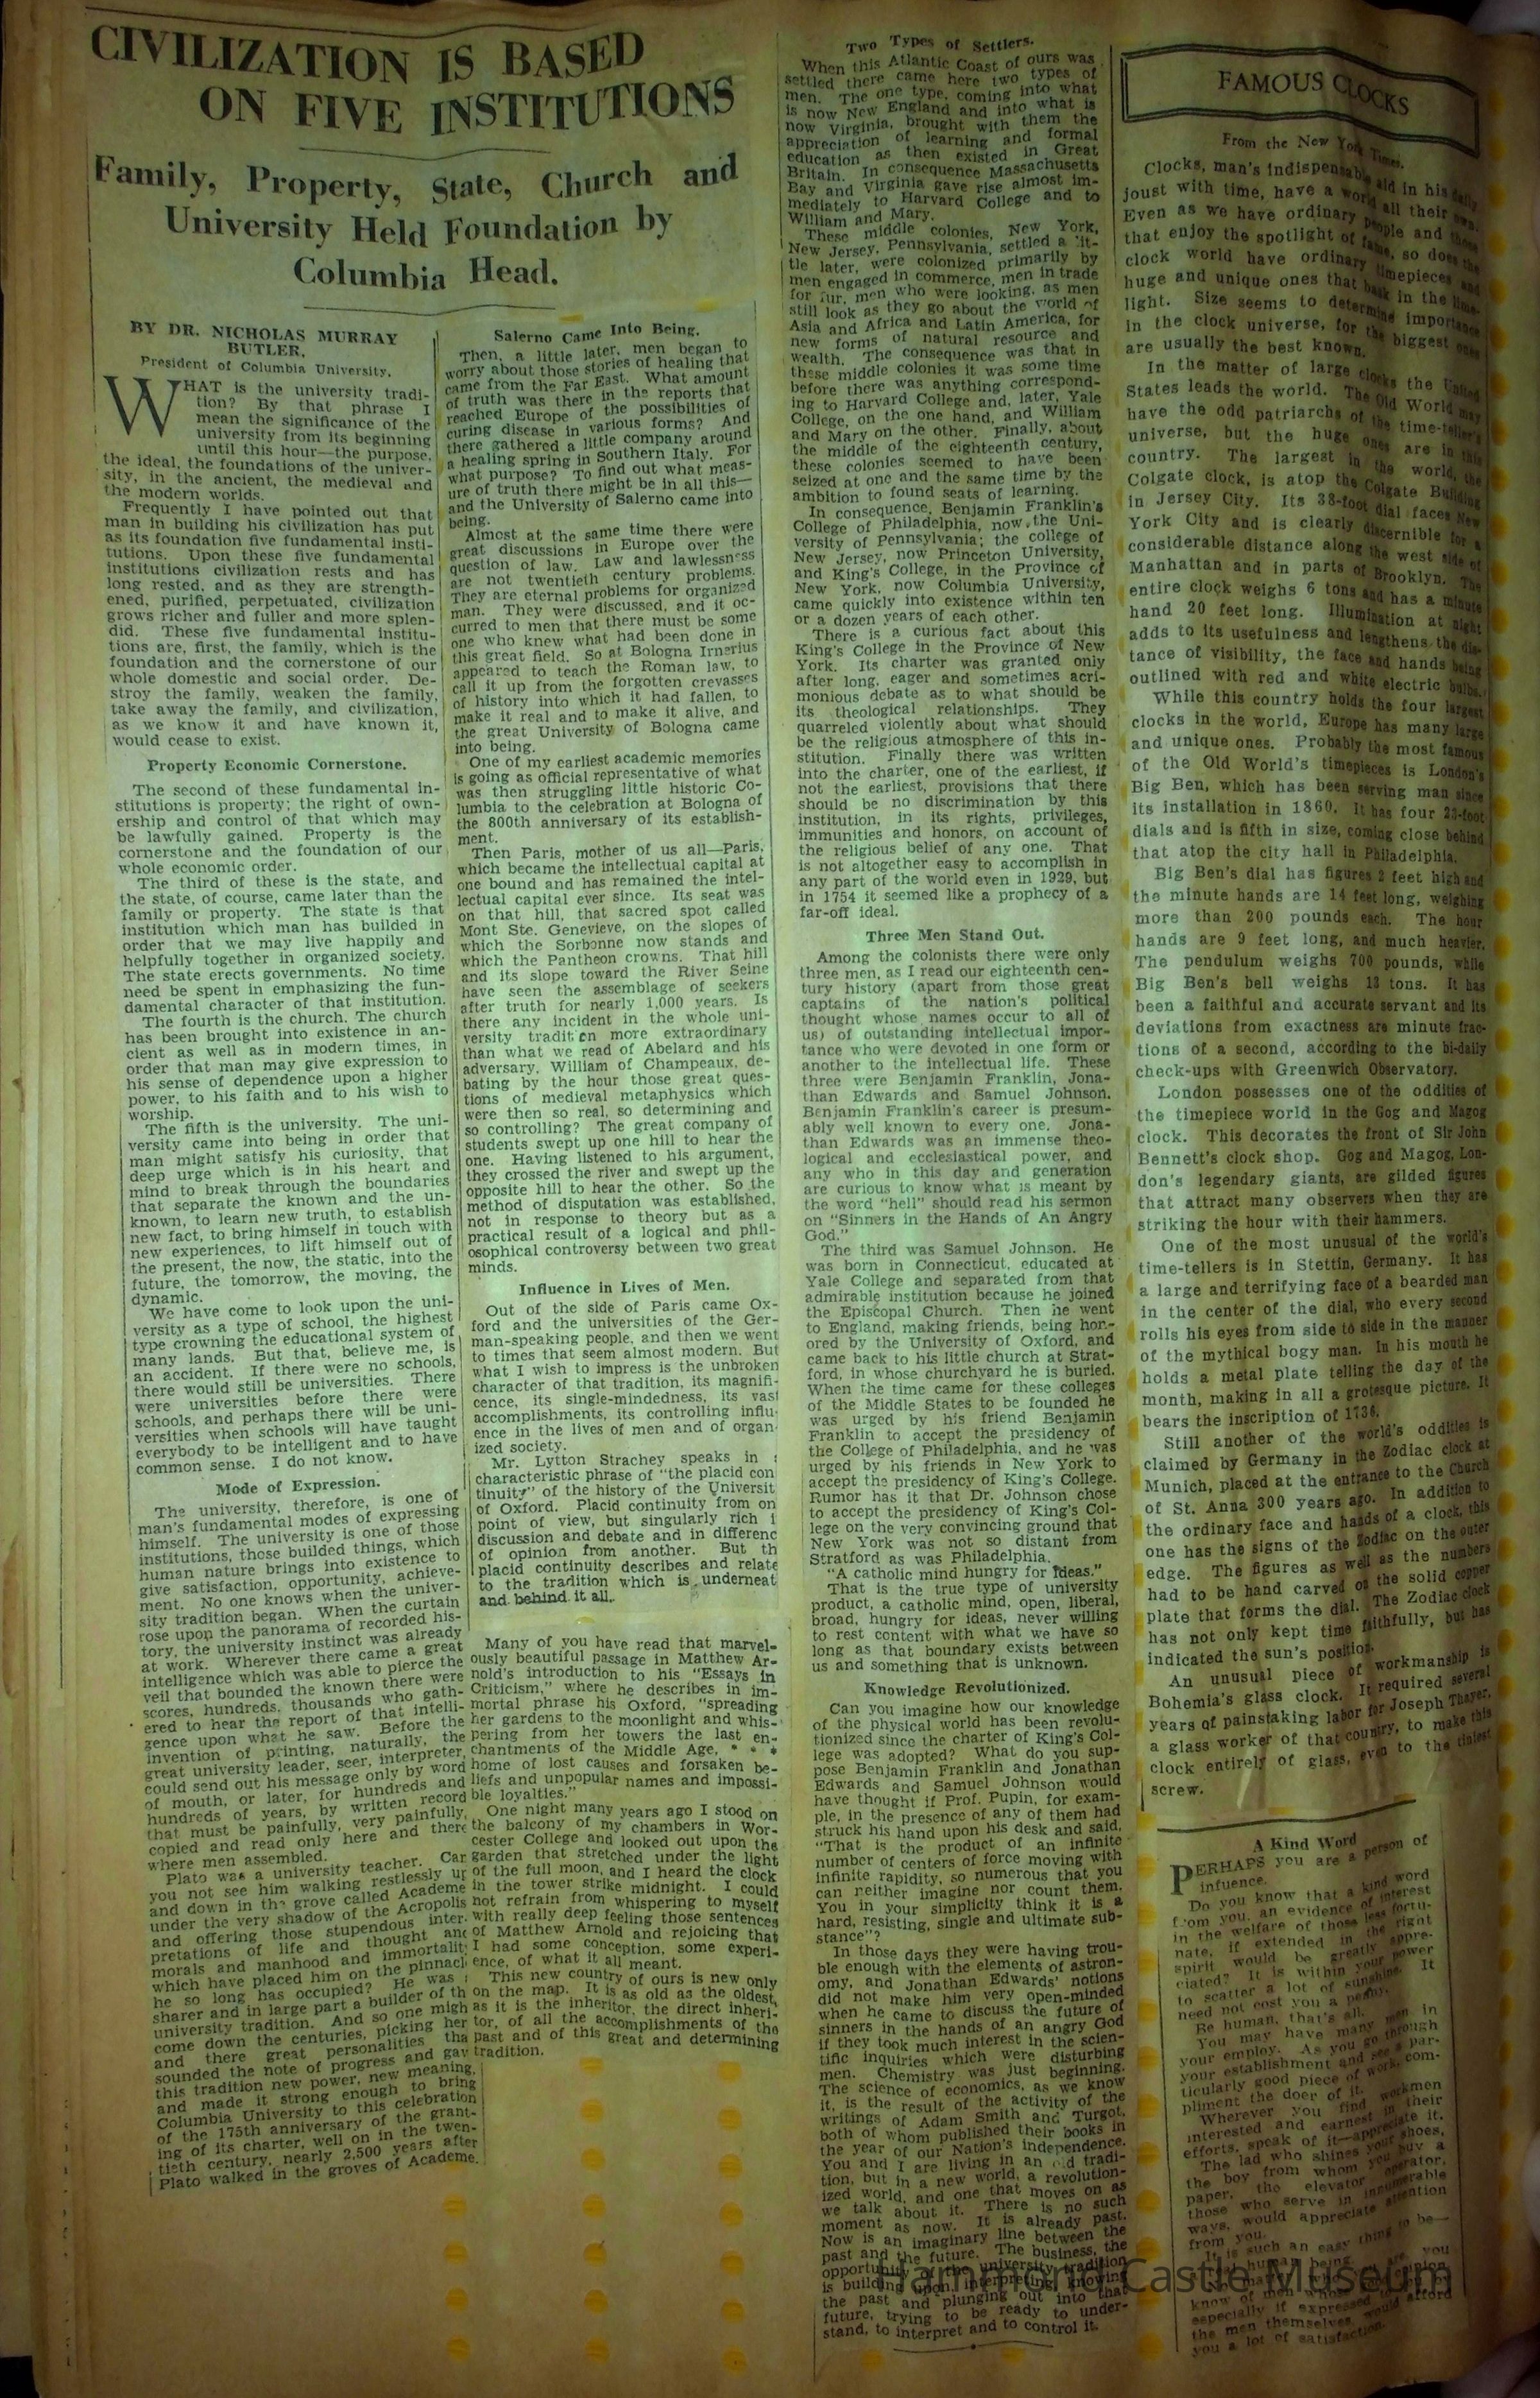 CIVILIZATION IS BASED
ON FIVE INSTITUTIONS
Family, Property, State, Church and
University Held Foundation by
Columbia Head.
BY DR. NICHOLAS MURRAY
BUTLER,
President of Columbia University.
WHAT is the university tradi-
tion? By that phrase I
mean the significance of the
university from its beginning
until this hour—the purpose,
the ideal, the foundations of the univer-
sity, in the ancient, the medieval and
the modern worlds.
Frequently I have pointed out that
man in building his civilization has put
as its foundation five fundamental insti-
tutions. Upon these five fundamental
institutions civilization rests and has
long rested, and as they are strength-
ened, purified, perpetuated, civilization
grows richer and fuller and more splen-
did. These five fundamental institu-
tions are, first, the family, which is the
foundation and the cornerstone of our
whole domestic and social order. De-
stroy the family, weaken the family,
take away the family, and civilization,
as we know it and have known it,
would cease to exist.
Property Economic Cornerstone.
The second of these fundamental in-
stitutions is property; the right of own-
ership and control of that which may
be lawfully gained. Property is the
cornerstone and the foundation of our
whole economic order.
The third of these is the state, and
the state, of course, came later than the
family or property. The state is that
institution which man has builded in
order that we may live happily and
helpfully together in organized society.
The state erects governments. No time
need be spent in emphasizing the fun-
damental character of that institution.
The fourth is the church. The church
has been brought into existence in an-
cient as well as in modern times, in
order that man may give expression to
his sense of dependence upon a higher
power, to his faith and to his wish to
worship.
The fifth is the university. The uni-
versity came into being in order that
man might satisfy his curiosity, that
deep urge which is in his heart and
mind to break through the boundaries
that separate the known and the un-
known, to learn new truth, to establish
new fact, to bring himself in touch with
new experiences, to lift himself out of
the present, the now, the static, into the
future, the tomorrow, the moving, the
dynamic.
We have come to look upon the uni-
versity as a type of school, the highest
type crowning the educational system of
many lands. But that, believe me, is
an accident. If there were no schools,
there would still be universities. There
were universities before there were
schools, and perhaps there will be uni-
versities when schools will have taught
everybody to be intelligent and to have
common sense. I do not know.
Mode of Expression.
The university, therefore, is one of
man's fundamental modes of expressing
himself. The university is one of those
institutions, those builded things, which
human nature brings into existence to
give satisfaction, opportunity, achieve-
ment. No one knows when the univer-
sity tradition began. When the curtain
rose upon the panorama of recorded his-
tory, the university instinct was already
at work. Wherever there came a great
intelligence which was able to pierce the
veil that bounded the known there were
scores, hundreds, thousands who gath-
ered to hear the report of that intelli-
gence upon what he saw. Before the
invention of printing, naturally, the
great university leader, seer, interpreter,
could send out his message only by word
of mouth, or later, for hundreds and
hundreds of years, by written record
that must be painfully, very painfully,
copied and read only here and there
where men assembled.
Plato was a university teacher. Can
you not see him walking restlessly up
and down in the grove called Academe
under the very shadow of the Acropolis
and offering those stupendous inter-
pretations of life and thought and
morals and manhood and immortality
which have placed him on the pinnacl
he so long has occupied? He was
sharer and in large part a builder of th
university tradition. And so one migh
come down the centuries, picking her
and there great personalities tha
sounded the note of progress and gav
this tradition new power, new meaning,
and made it strong enough to bring
Columbia University to this celebration
of the 175th anniversary of the grant-
ing of its charter, well on in the twen-
tieth century, nearly 2,500 years after
Plato walked in the groves of Academe.
Salerno Came Into Being.
Then, a little later, men began to
worry about those stories of healing that
came from the Far East. What amount
of truth was there in the reports that
reached Europe of the possibilities of
curing disease in various forms? And
there gathered a little company around
a healing spring in Southern Italy. For
what purpose? To find out what meas-
ure of truth there might be in all this—
and the University of Salerno came into
being.
Almost at the same time there were
great discussions in Europe over the
question of law. Law and lawlessness
are not twentieth century problems.
They are eternal problems for organized
man. They were discussed, and it oc-
curred to men that there must be some
one who knew what had been done in
this great field. So at Bologna Irnerius
appeared to teach the Roman law, to
call it up from the forgotten crevasses
of history into which it had fallen, to
make it real and to make it alive, and
the great University of Bologna came
into being.
One of my earliest academic memories
is going as official representative of what
was then struggling little historic Co-
lumbia to the celebration at Bologna of
the 800th anniversary of its establish-
ment.
Then Paris, mother of us all—Paris,
which became the intellectual capital at
one bound and has remained the intel-
lectual capital ever since. Its seat was
on that hill, that sacred spot called
Mont Ste. Genevieve, on the slopes of
which the Sorbonne now stands and
which the Pantheon crowns. That hill
and its slope toward the River Seine
have seen the assemblage of seekers
after truth for nearly 1,000 years. Is
there any incident in the whole uni-
versity tradition more extraordinary
than what we read of Abelard and his
adversary, William of Champeaux, de-
bating by the hour those great ques-
tions of medieval metaphysics which
were then so real, so determining and
so controlling? The great company of
students swept up one hill to hear the
one. Having listened to his argument,
they crossed the river and swept up the
opposite hill to hear the other. So the
method of disputation was established,
not in response to theory but as a
practical result of a logical and phil-
osophical controversy between two great
minds.
Influence in Lives of Men.
Out of the side of Paris came Ox-
ford and the universities of the Ger-
man-speaking people, and then we went
to times that seem almost modern. But
what I wish to impress is the unbroken
character of that tradition, its magnifi-
cence, its single-mindedness, its vast
accomplishments, its controlling influ-
ence in the lives of men and of organ-
ized society.
Mr. Lytton Strachey speaks in
characteristic phrase of "the placid con
tinuity" of the history of the Universit
of Oxford. Placid continuity from on
point of view, but singularly rich i
discussion and debate and in differenc
of opinion from another. But th
placid continuity describes and relate
to the tradition which is underneat
and behind it all.
Many of you have read that marvel-
ously beautiful passage in Matthew Ar-
nold's introduction to his "Essays in
Criticism," where he describes in im-
mortal phrase his Oxford, "spreading
her gardens to the moonlight and whis-
pering from her towers the last en-
chantments of the Middle Age, * * *
home of lost causes and forsaken be-
liefs and unpopular names and impossi-
ble loyalties."
One night many years ago I stood on
the balcony of my chambers in Wor-
cester College and looked out upon the
garden that stretched under the light
of the full moon, and I heard the clock
in the tower strike midnight. I could
not refrain from whispering to myself
with really deep feeling those sentences
of Matthew Arnold and rejoicing that
I had some conception, some experi-
ence, of what it all meant.
This new country of ours is new only
on the map. It is as old as the oldest,
as it is the inheritor, the direct inheri-
tor, of all the accomplishments of the
past and of this great and determining
tradition.
Two Types of Settlers.
When this Atlantic Coast of ours was
settled there came here two types of
men. The one type, coming into what
is now New England and into what is
now Virginia, brought with them the
appreciation of learning and formal
education as then existed in Great
Britain. In consequence Massachusetts
Bay and Virginia gave rise almost im-
mediately to Harvard College and to
William and Mary.
These middle colonies, New York,
New Jersey, Pennsylvania, settled a lit-
tle later, were colonized primarily by
men engaged in commerce, men in trade
for fur, men who were looking, as men
still look as they go about the world of
Asia and Africa and Latin America, for
new forms of natural resource and
wealth. The consequence was that in
these middle colonies it was some time
before there was anything correspond-
ing to Harvard College and, later, Yale
College, on the one hand, and William
and Mary on the other. Finally, about
the middle of the eighteenth century,
these colonies seemed to have been
seized at one and the same time by the
ambition to found seats of learning.
In consequence, Benjamin Franklin's
College of Philadelphia, now the Uni-
versity of Pennsylvania; the college of
New Jersey, now Princeton University,
and King's College, in the Province of
New York, now Columbia University,
came quickly into existence within ten
or a dozen years of each other.
There is a curious fact about this
King's College in the Province of New
York. Its charter was granted only
after long, eager and sometimes acri-
monious debate as to what should be
its theological relationships. They
quarreled violently about what should
be the religious atmosphere of this in-
stitution. Finally there was written
into the charter, one of the earliest, if
not the earliest, provisions that there
should be no discrimination by this
institution, in its rights, privileges,
immunities and honors, on account of
the religious belief of any one. That
is not altogether easy to accomplish in
any part of the world even in 1929, but
in 1754 it seemed like a prophecy of a
far-off ideal.
Three Men Stand Out.
Among the colonists there were only
three men, as I read our eighteenth cen-
tury history (apart from those great
captains of the nation's political
thought whose names occur to all of
us) of outstanding intellectual impor-
tance who were devoted in one form or
another to the intellectual life. These
three were Benjamin Franklin, Jona-
than Edwards and Samuel Johnson.
Benjamin Franklin's career is presum-
ably well known to every one. Jona-
than Edwards was an immense theo-
logical and ecclesiastical power, and
any who in this day and generation
are curious to know what is meant by
the word "hell" should read his sermon
on "Sinners in the Hands of An Angry
God."
The third was Samuel Johnson. He
was born in Connecticut, educated at
Yale College and separated from that
admirable institution because he joined
the Episcopal Church. Then he went
to England, making friends, being hon-
ored by the University of Oxford, and
came back to his little church at Strat-
ford, in whose churchyard he is buried.
When the time came for these colleges
of the Middle States to be founded he
was urged by his friend Benjamin
Franklin to accept the presidency of
the College of Philadelphia, and he was
urged by his friends in New York to
accept the presidency of King's College.
Rumor has it that Dr. Johnson chose
to accept the presidency of King's Col-
lege on the very convincing ground that
New York was not so distant from
Stratford as was Philadelphia.
"A catholic mind hungry for ideas."
That is the true type of university
product, a catholic mind, open, liberal,
broad, hungry for ideas, never willing
to rest content with what we have so
long as that boundary exists between
us and something that is unknown.
Knowledge Revolutionized.
Can you imagine how our knowledge
of the physical world has been revolu-
tionized since the charter of King's Col-
lege was adopted? What do you sup-
pose Benjamin Franklin and Jonathan
Edwards and Samuel Johnson would
have thought if Prof. Pupin, for exam-
ple, in the presence of any of them had
struck his hand upon his desk and said,
"That is the product of an infinite
number of centers of force moving with
infinite rapidity, so numerous that you
can neither imagine nor count them.
You in your simplicity think it is a
hard, resisting, single and ultimate sub-
stance"?
In those days they were having trou-
ble enough with the elements of astron-
omy, and Jonathan Edwards' notions
did not make him very open-minded
when he came to discuss the future of
sinners in the hands of an angry God
if they took much interest in the scien-
tific inquiries which were disturbing
men. Chemistry was just beginning.
The science of economics, as we know
it, is the result of the activity of the
writings of Adam Smith and Turgot,
both of whom published their books in
the year of our Nation's independence.
You and I are living in an old tradi-
tion, but in a new world, a revolution-
ized world, and one that moves on as
we talk about it. There is no such
moment as now. It is already past.
Now is an imaginary line between the
past and the future. The business, the
opportunity university tradition
is building upon, interpreting, knowing
the past and plunging out into that
future, trying to be ready to under-
stand, to interpret and to control it.
FAMOUS CLOCKS
From the New York Times.
Clocks, man's indispensable aid in his daily
joust with time, have a world all their own.
Even as we have ordinary people and those
that enjoy the spotlight of fame, so does the
clock world have ordinary timepieces and
huge and unique ones that bask in the lime-
light. Size seems to determine importance
in the clock universe, for the biggest ones
are usually the best known.
In the matter of large clocks the United
States leads the world. The Old World may
have the odd patriarchs of the time-teller's
universe, but the huge ones are in this
country. The largest in the world, the
Colgate clock, is atop the Colgate Building
in Jersey City. Its 38-foot dial faces New
York City and is clearly discernible for a
considerable distance along the west side of
Manhattan and in parts of Brooklyn. The
entire clock weighs 6 tons and has a minute
hand 20 feet long. Illumination at night
adds to its usefulness and lengthens the dis-
tance of visibility, the face and hands being
outlined with red and white electric bulbs.
While this country holds the four largest
clocks in the world, Europe has many large
and unique ones. Probably the most famous
of the Old World's timepieces is London's
Big Ben, which has been serving man since
its installation in 1860. It has four 23-foot
dials and is fifth in size, coming close behind
that atop the city hall in Philadelphia.
Big Ben's dial has figures 2 feet high and
the minute hands are 14 feet long, weighing
more than 200 pounds each. The hour
hands are 9 feet long, and much heavier.
The pendulum weighs 700 pounds, while
Big Ben's bell weighs 13 tons. It has
been a faithful and accurate servant and its
deviations from exactness are minute frac-
tions of a second, according to the bi-daily
check-ups with Greenwich Observatory.
London possesses one of the oddities of
the timepiece world in the Gog and Magog
clock. This decorates the front of Sir John
Bennett's clock shop. Gog and Magog, Lon-
don's legendary giants, are gilded figures
that attract many observers when they are
striking the hour with their hammers.
One of the most unusual of the world's
time-tellers is in Stettin, Germany. It has
a large and terrifying face of a bearded man
in the center of the dial, who every second
rolls his eyes from side to side in the manner
of the mythical bogy man. In his mouth he
holds a metal plate telling the day of the
month, making in all a grotesque picture. It
bears the inscription of 1736.
Still another of the world's oddities is
claimed by Germany in the Zodiac clock at
Munich, placed at the entrance to the Church
of St. Anna 300 years ago. In addition to
the ordinary face and hands of a clock, this
one has the signs of the Zodiac on the outer
edge. The figures as well as the numbers
had to be hand carved on the solid copper
plate that forms the dial. The Zodiac clock
has not only kept time faithfully, but has
indicated the sun's position.
An unusual piece of workmanship is
Bohemia's glass clock. It required several
years of painstaking labor for Joseph Thayer,
a glass worker of that country, to make this
clock entirely of glass, even to the tiniest
screw.
A Kind Word
PERHAPS you are a person of
infuence.
Do you know that a kind word
from you, an evidence of interest
in the welfare of those less fortu-
nate, if extended in the right
spirit would be greatly appre-
ciated? It is within your power
to scatter a lot of sunshine. It
need not cost you a penny.
Be human, that's all.
You may have many men in
your employ. As you go through
your establishment and see a par-
ticularly good piece of work, com-
pliment the doer of it.
Wherever you find workmen
interested and earnest in their
efforts, speak of it—appreciate it.
The lad who shines your shoes,
the boy from whom you buy a
paper, the elevator operator,
those who serve in innumerable
ways, would appreciate attention
from you.
It is such an easy thing to be—
human being. you
know of men
especially if expressed
the men themselves, would afford
you a lot of satisfaction.
Hammond Castle Museum